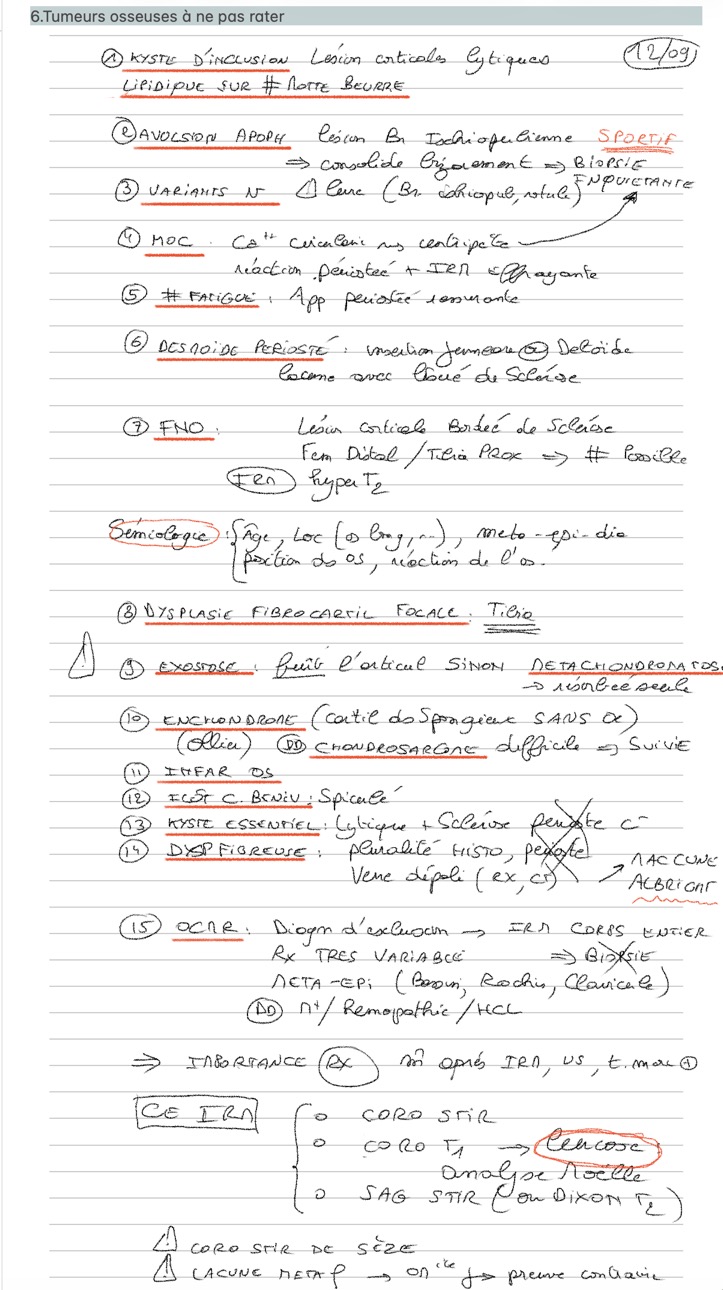 6.Tumeurs osseuses à ne pas rater
① KYSTE D'INCLUSION Lésion corticale lytiques 12/09
LIPIDIQUE SUR # MOTTE BEURRE
② AVULSION APOPH lésion Br Ischiopubienne SPORTIF
⇒ consolide bizarrement ⇒ BIOPSIE
③ VARIANTS N ⚠ (Br ischiopub, rotule) INQUIETANTE
④ MOC . Ca++ centripète
réaction périostée + IRM Effrayante
⑤ # FATIGUE : App periostée rassurante
⑥ DESMOÏDE PERIOSTÉ : insertion jumeaux Deltoïde
lacune avec liseré de Sclérose
⑦ FNO : Lésion corticale Bordée de Sclérose
Fem Distal / Tibia PROX ⇒ # Possible
IRM hyper T2
Sémiologie : Âge, Loc (os long, ...), meta-epi-dia
position ds os, réaction de l'os.
⑧ DYSPLASIE FIBROCARTIL FOCALE : Tibia
⚠ ⑨ EXOSTOSE : fuit l'articul SINON METACHONDROMATOSE
→ résorbée seule
⑩ ENCHONDROME (cartil ds Spongieux SANS )
(Ollier) DD CHONDROSARCOME difficile ⇒ SUIVIE
⑪ INFAR OS
⑫ ILOT C. BENIN : Spiculé
⑬ KYSTE ESSENTIEL : Lytique + Sclérose périoste C-
⑭ DYSP FIBREUSE : pluralité HISTO, périoste
Verre dépoli (RX, CT) → MACCUNE
ALBRIGHT
⑮ OCMR : Diagn d'exclusion → IRM CORPS ENTIER
RX TRES VARIABLE ⇒ BIOPSIE
META-EPI (Bassin, Rachis, Clavicule)
DD M+/Hemopathie/HCL
⇒ IMPORTANCE RX m̂ après IRM, US, t. mou ⊕
CE IRM
○ CORO STIR
○ CORO T1 → Leucose
analyse Moëlle
○ SAG STIR (ou DIXON T2)
⚠ CORO STIR DE SÈZE
⚠ LACUNE METAPH → preuve contraire